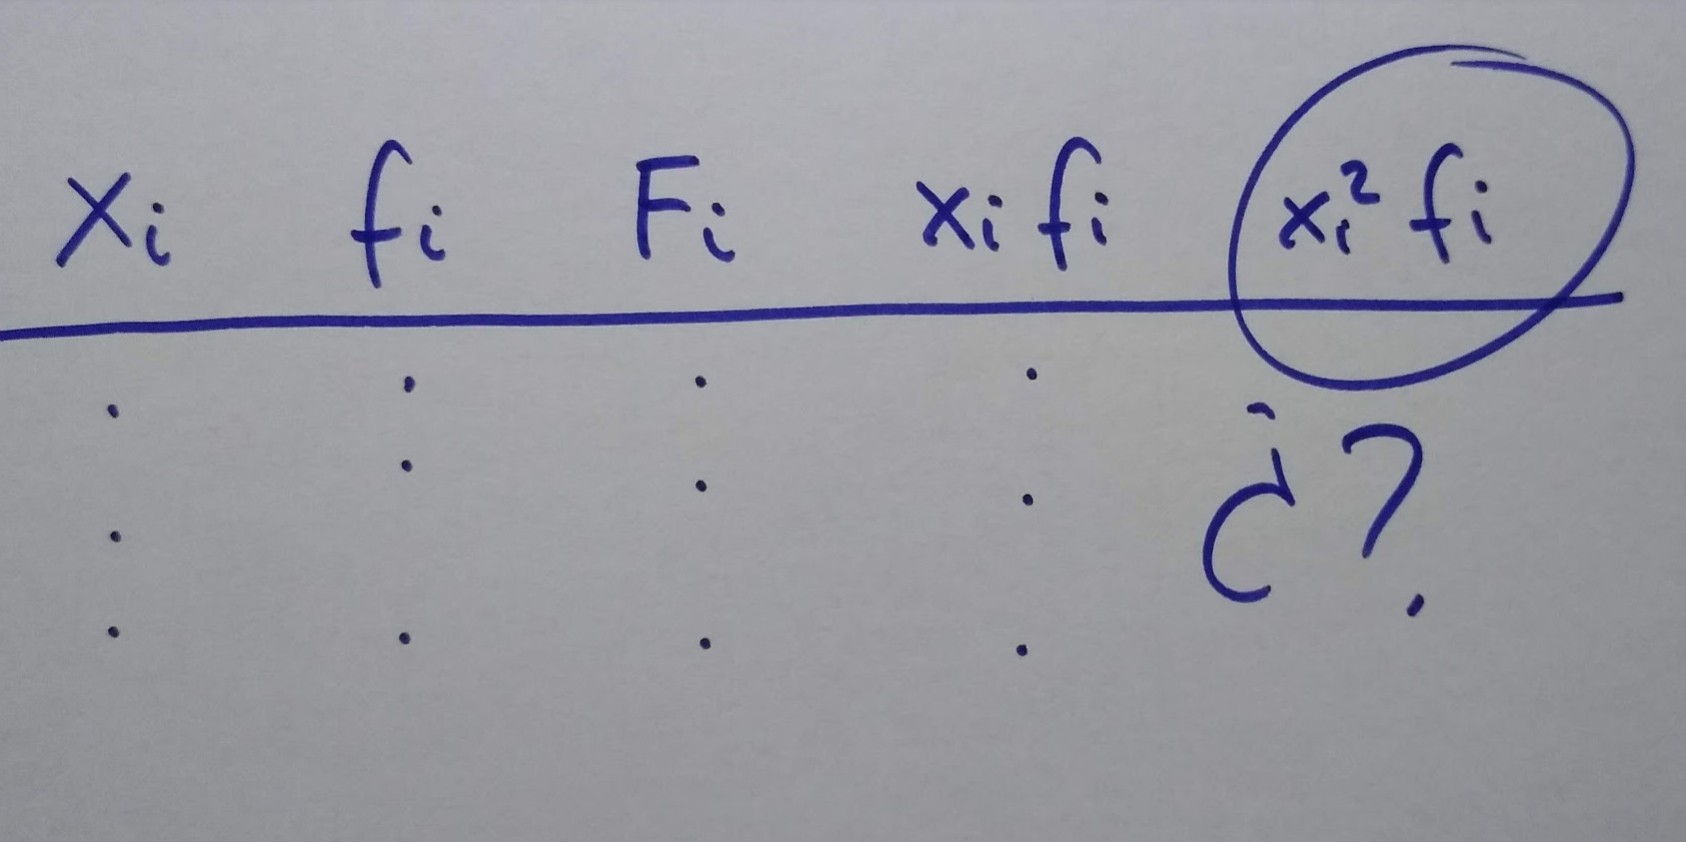 xi fi Fi xi fi xi² fi
¿?